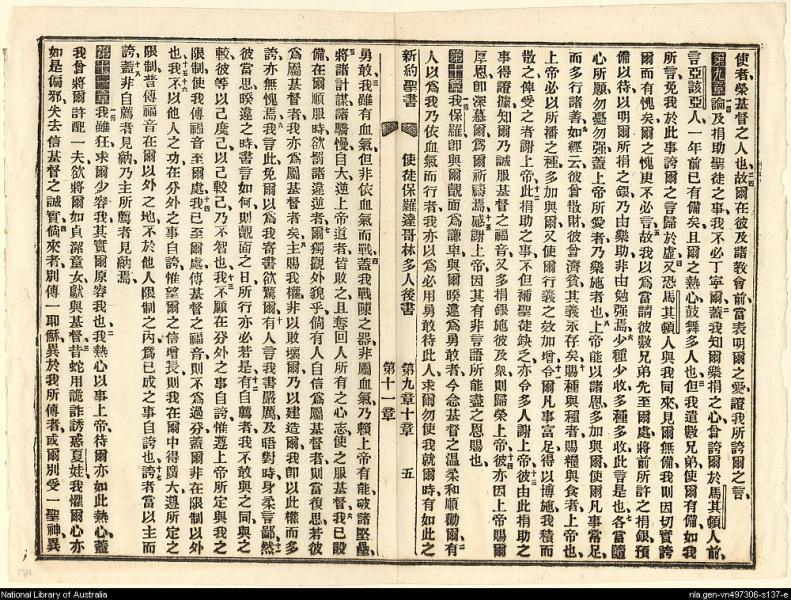 使者榮基督之人也故爾在彼及諸教會前當表明爾之愛證我所誇爾之言
第九章論及捐助聖徒之事我不必丁寧爾蓋我知爾樂捐之心曾誇爾於馬其頓人前
言亞該亞人一年前已有備矣且爾之熱心鼓舞多人也但我遣數兄弟使爾有備如我
所言免我於此事誇爾之言歸於虛又恐馬其頓人與我同來見爾無備我則因切實誇
爾而有愧矣爾之愧更不必言故我以爲當請彼數兄弟先至爾處將前所許之捐銀預
備以待以明爾所捐之銀乃由樂助非由勉強焉少種少收多種多收此言是也各當隨
心所願勿憂勿強蓋上帝所愛者乃樂施者也上帝能以諸恩多加與爾使爾凡事常足
而多行諸善如經云彼曾散財彼曾濟貧其義永存矣賜種與種者賜糧與食者上帝也
上帝必以所播之種多加與爾又使爾行義之效加增令爾凡事富足得以博施我積而
散之俾受之者謝上帝此捐助之事不但補聖徒缺之亦令多人謝上帝彼由此捐助之
事得證據知爾乃誠服基督之福音又多捐銀施彼及衆則歸榮上帝彼亦因上帝賜爾
厚恩卽深慕爾爲爾祈禱焉感謝上帝因其有非言語所能盡之恩賜也
第十章我保羅卽與爾覿面爲謙卑與爾暌違爲勇敢者今念基督之温柔和順勸爾有
人以爲我乃依血氣而行者我亦以爲必用勇敢待此人求爾勿使我就爾時有如此之
新約聖書 使徒保羅達哥林多人後書 第九章十章 五
第十一章
勇敢我雖有血氣但非依血氣而戰蓋我戰陳之器非屬血氣乃賴上帝有能破諸堅壘
將諸計謀諸驕慢自大逆上帝道者皆敗之且奪回人所有之心志使之服基督我已設
備在爾順服時欲罰諸違逆者爾獨觀外貌乎倘有人自信爲屬基督者則當復思若彼
爲屬基督者我亦爲屬基督者矣主賜我權非以敗壞爾乃以建造爾我卽以此權而多
誇亦無愧焉我言此免爾以爲我寄書欲驚爾有人言我書嚴厲及晤對時身柔言鄙然
彼當思暌違之時書言如何則覿面之日所行亦必若是有自薦者我不敢與之同與之
較彼等以己度己以己較己乃不智也我不願在分外之事自誇惟遵上帝所定與我之
限制使我傳福音至爾處我已至爾處傳基督之福音則不爲過分蓋爾非在限制以外
也我不以他人之功在分外之事自誇惟望爾之信增長則我在爾中得廣大遵所定之
限制曾傳福音在爾以外之地不於他人限制之內爲已成之事自誇也誇者當以主而
誇蓋非自薦者見納乃主所薦者見納焉
第十一章我雖狂求爾少容我其實爾原容我也我熱心以事上帝待爾亦如此熱心蓋
我曾將爾許配一夫欲將爾如貞潔童女獻與基督昔蛇用詭詐誘惑夏娃我懼爾心亦
如是偏邪失去信基督之誠實倘來者別傳一耶穌異於我所傳者或爾別受一聖神異
National Library of Australia
nla.gen-vn497306-s137-e